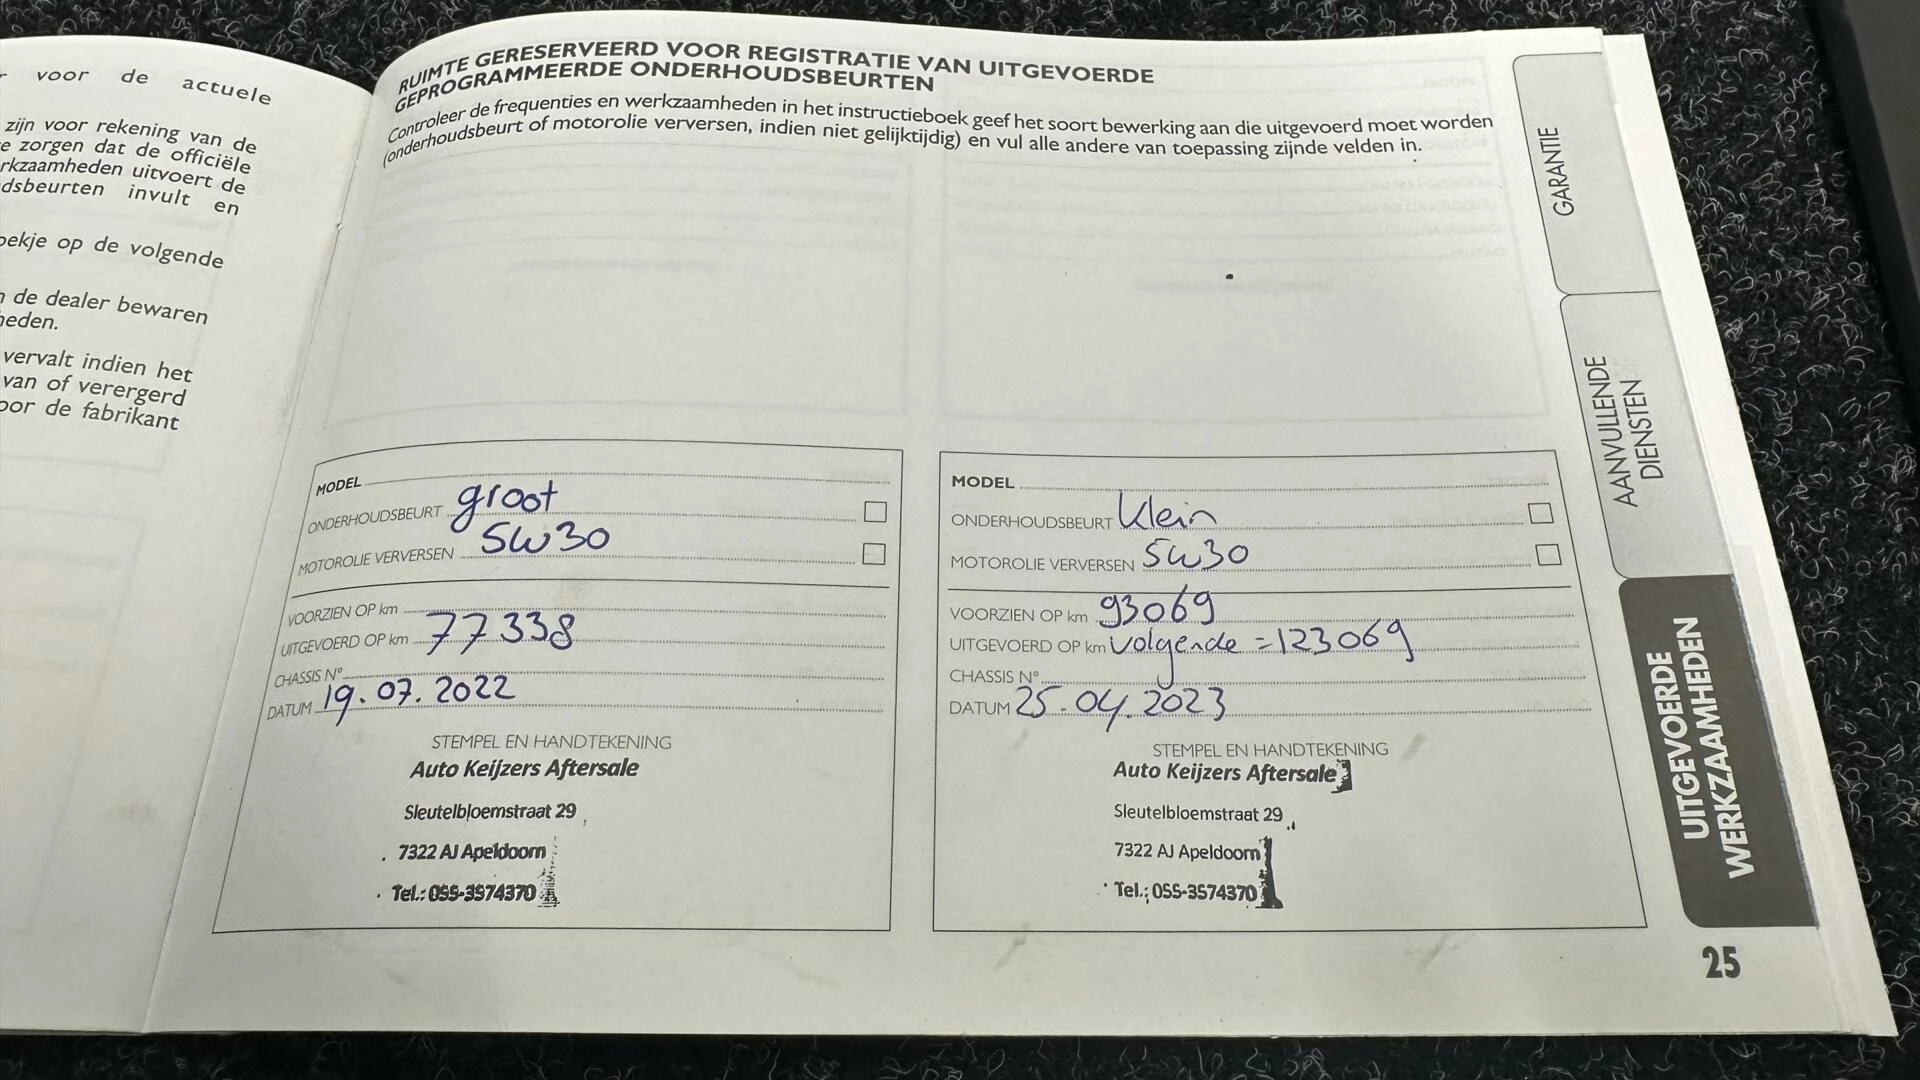 voor de actuele
zijn voor rekening van de
zorgen dat de officiële
uitvoert de
invult en
op de volgende
de dealer bewaren
vervalt indien het
van of verergerd
de fabrikant
RUIMTE GERESERVEERD VOOR REGISTRATIE VAN UITGEVOERDE
GEPROGRAMMEERDE ONDERHOUDSBEURTEN
Controleer de frequenties en werkzaamheden in het instructieboek geef het soort bewerking aan die uitgevoerd moet worden
(onderhoudsbeurt of motorolie verversen, indien niet gelijktijdig) en vul alle andere van toepassing zijnde velden in.
MODEL
ONDERHOUDSBEURT groot
MOTOROLIE VERVERSEN 5W30
VOORZIEN OP km
UITGEVOERD OP km 77338
CHASSIS N°
DATUM 19.07.2022
STEMPEL EN HANDTEKENING
Auto Keijzers Aftersale
Sleutelbloemstraat 29
7322 AJ Apeldoorn
Tel.: 055-3574370
MODEL
ONDERHOUDSBEURT Klein
MOTOROLIE VERVERSEN 5W30
VOORZIEN OP km 93069
UITGEVOERD OP km volgende = 123069
CHASSIS N°
DATUM 25.04.2023
STEMPEL EN HANDTEKENING
Auto Keijzers Aftersale
Sleutelbloemstraat 29
7322 AJ Apeldoorn
Tel.: 055-3574370
GARANTIE
AANVULLENDE
DIENSTEN
UITGEVOERDE
WERKZAAMHEDEN
25